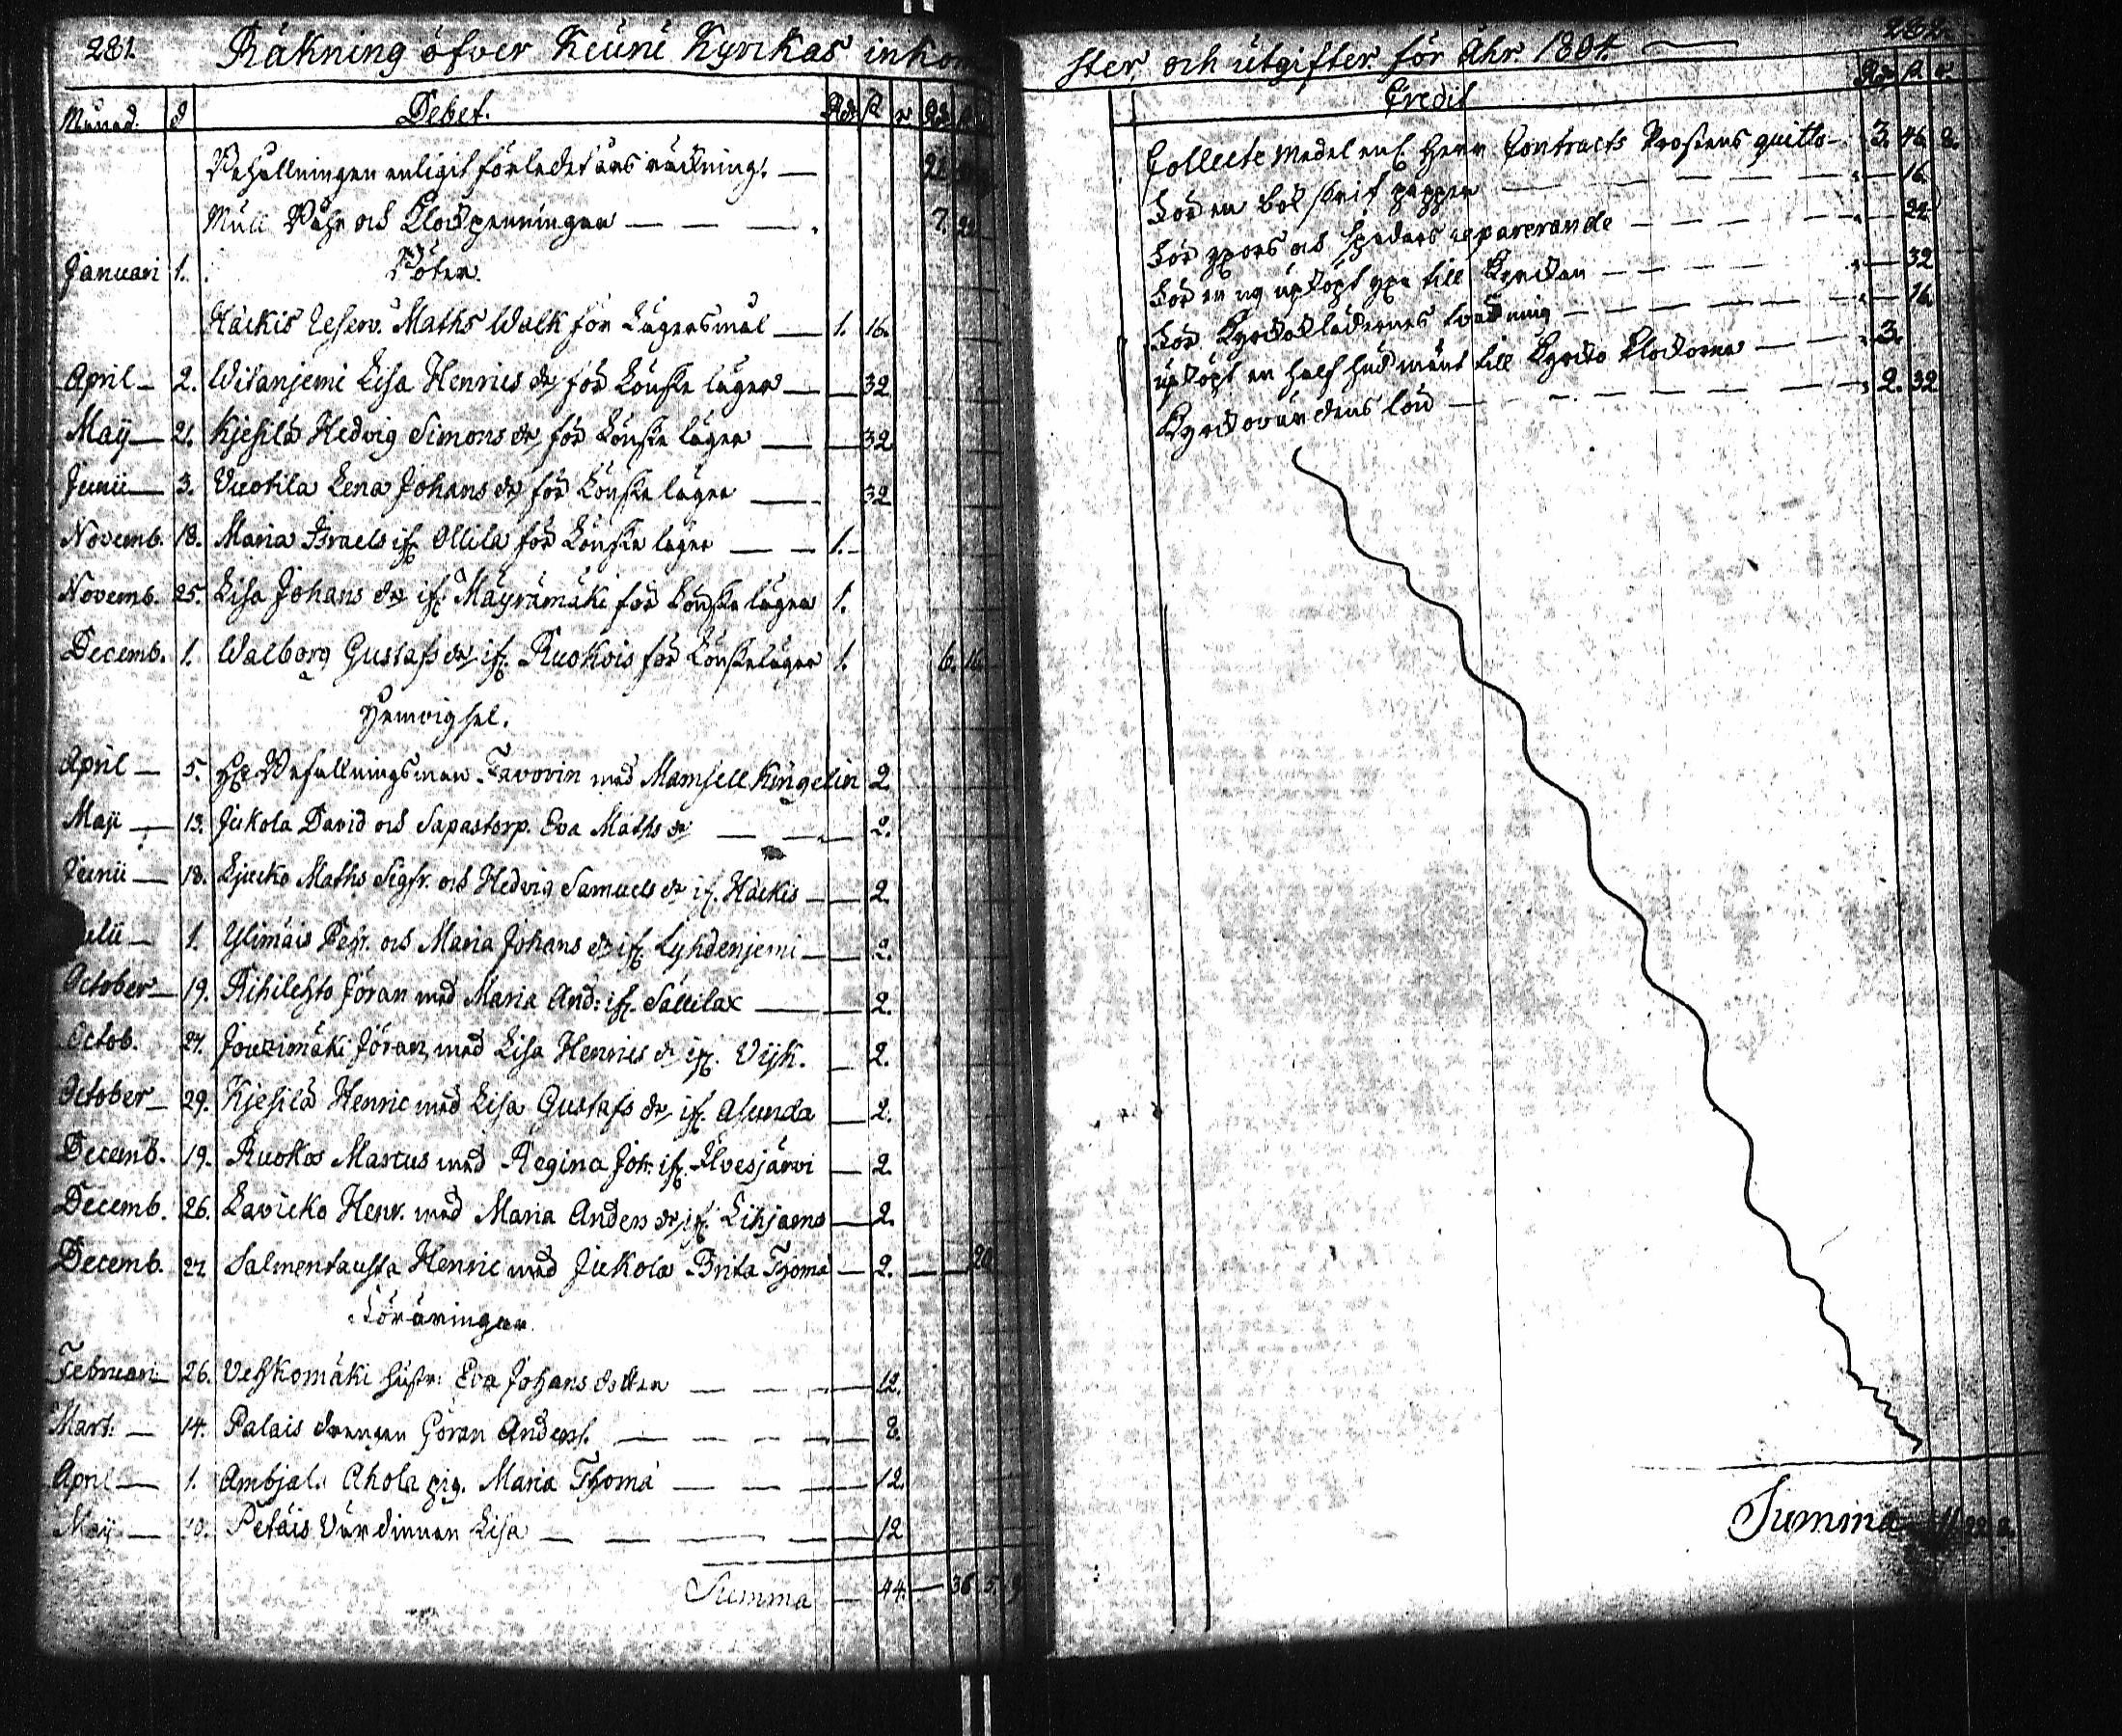 281. Räkning öfver Keuru Kyrckas inkom
Månad. d Debet. Rdr ß r Rdr
Behållningen enligit förledet års räckning. — 21.
Mull Båhr och Klockpenningar — — — 7. 22
Januari 1. Böter.
Häckis Reserv. Maths Walk för Lägersmål — 1. 16.
April — 2. Witanjemi Lisa Henrics dr för Lönske läger — 32
Maij — 21. Kjesilä Hedvig Simons dr för Lönske läger — 32.
Junii — 3. Vuotila Lena Johans dr för Lönske läger — 32
Novemb. 18. Maria Israels if. Ollila för Lönske läger — — 1.
Novemb. 25. Lisa Johans dr if. Mäyrämäki för Lönske läger 1.
Decemb. 1. Walborg Gustafs dr if. Ruokois för Lönskeläger 1. 6. 16.
Hemvigsel.
April — 5. Befallningsman Favorin med Mamsell Kingelin 2
Maji — 13. Jukola David och Sapastorp. Eva Maths dr — — 2.
Junii — 18. Ljucko Maths Sigfr. och Hedvig Samuels dr if. Häckis — 2.
ulii — 1. Ylimäis Pehr. och Maria Johans dr if. Lyhdenjemi — 2.
October — 19. Rihilehto Jöran med Maria And: if. Sällilax — 2.
Octob. 27. Jouzimäki Jöran med Lisa Henrics dr if. Vijk. — 2.
October — 29. Kjesilä Henric med Lisa Gustafs dr if. Asunda — 2.
Decemb. 19. Ruokos Marcus med Regina Joh. if. Ilvesjärvi — 2
Decemb. 26. Lavicko Henr. med Maria Anders dr if. Likjaemo — 2.
Decemb. 27. Salmentausta Henric med Jukola Brita Thoma — 2. — 20
Föräringar
Februari — 26. Vehkomäki hustr. Eva Johans dotter — — — 12.
Mart. — 14. Palais drengen Göran Anders. — — — — 8.
April — 1. Ambjal. Ahola pig. Maria Thoma — — — 12.
Maij — 10. Petäis Värdinnan Lisa — — — — 12
Summa — 44. — 36. 5. 9
ster, och utgifter för Åhr. 1804. — 282.
Credit Rdr ß r.
Collecte Medel enl. Herr Contracts Prostens quitto — 3. 46. 8.
För en bok skrif papper — — — 16.
För och spadars reparerande — — — 22.
För en ny upköpt till Kyrckan — — — 32
För Kyrckoklädernes tvättning — — — 16.
upköpt en half hud till Kyrcko klockorna — — 3.
Kyrckovärdens lön — — — 2. 32
Summa 11 22 8.